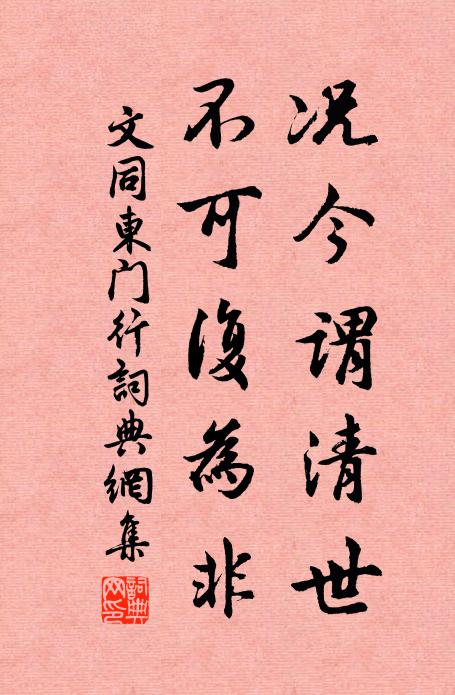 况今謂清世
不可復為非
文同東門行詞典網集
詞典網印